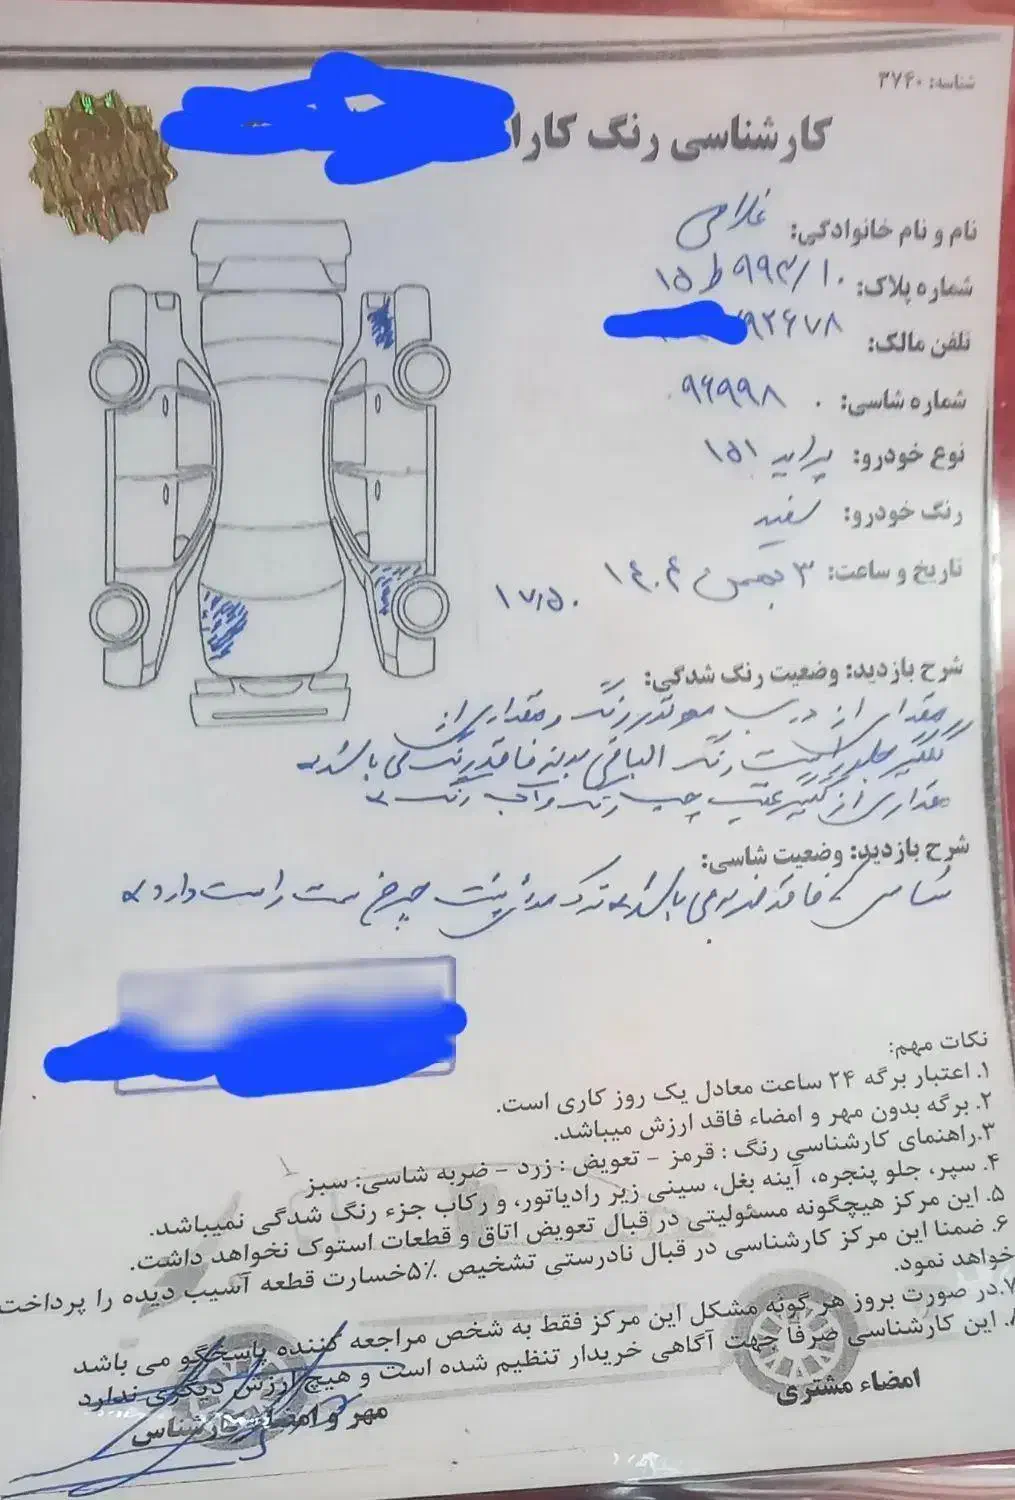 شناسه: ۳۷۴۰
کارشناسی رنگ کارا
نام و نام خانوادگی: غلامی
شماره پلاک: ۱۰/ ۹۹۳ ط ۱۵
تلفن مالک: ۹۲۶۷۸
شماره شاسی: ۹۶۹۹۸۰
نوع خودرو: پراید ۱۵۱
رنگ خودرو: سفید
تاریخ و ساعت: ۳ بهمن ۱۴۰۴ ۱۷،۵۰
شرح بازدید: وضعیت رنگ شدگی:
مقداری از درب رنگ و مقداری از
گلگیر جلو راست رنگ الباقی بدنه فاقد رنگ می باشد
مقداری از گلگیر عقب چپ رنگ و
شرح بازدید: وضعیت شاسی:
شاسی فاقد ضربه می باشد ترک چرخ سمت راست دارد
نکات مهم:
۱. اعتبار برگه ۲۴ ساعت معادل یک روز کاری است.
۲. برگه بدون مهر و امضاء فاقد ارزش میباشد.
۳.راهنمای کارشناسی رنگ : قرمز - تعویض : زرد - ضربه شاسی: سبز
۴. سپر، جلو پنجره، آینه بغل، سینی زیر رادیاتور، و رکاب جزء رنگ شدگی نمیباشد.
۵. این مرکز هیچگونه مسئولیتی در قبال تعویض اتاق و قطعات استوک نخواهد داشت.
۶. ضمنا این مرکز کارشناسی در قبال نادرستی تشخیص ۵٪خسارت قطعه آسیب دیده را پرداخت
خواهد نمود.
۷.در صورت بروز هر گونه مشکل این مرکز فقط به شخص مراجعه کننده پاسخگو می باشد
۸. این کارشناسی صرفا جهت آگاهی خریدار تنظیم شده است و هیچ ارزش دیگری ندارد
امضاء مشتری
مهر و امضاء کارشناس